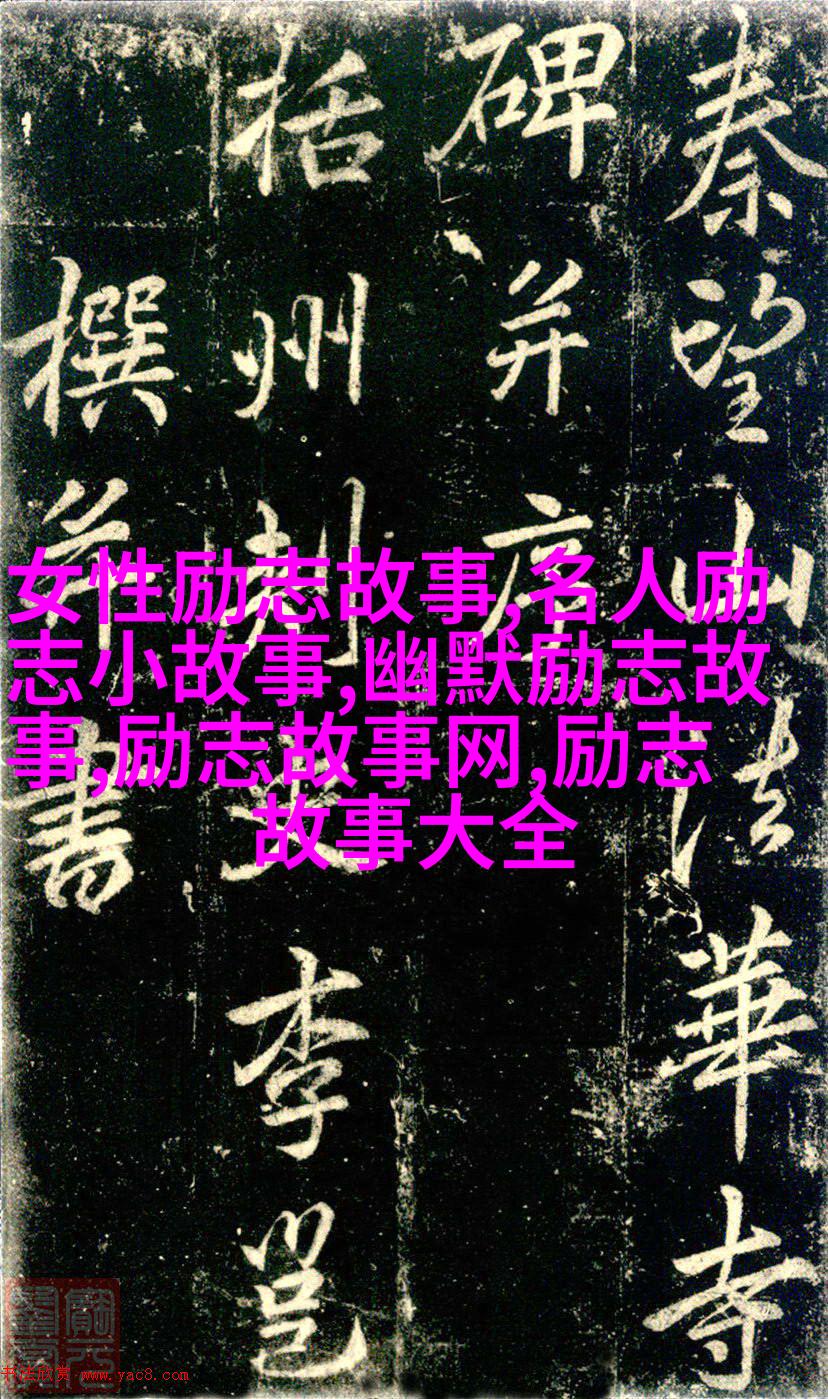 秦望山法華寺
碑并序
括州刺史李邕
撰并書
女性励志故事,名人励
志小故事,幽默励志故
事,励志故事网,励志
故事大全
书法欣赏 www.yac8.com